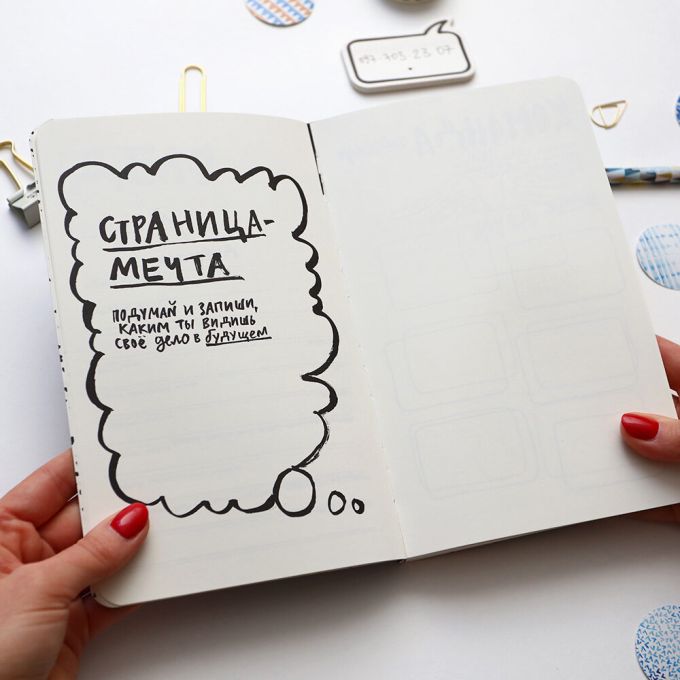 СТРАНИЦА-
МЕЧТА
ПОДУМАЙ И ЗАПИШИ,
КАКИМ ТЫ ВИДИШЬ
СВОЁ ДЕЛО В БУДУЩЕМ